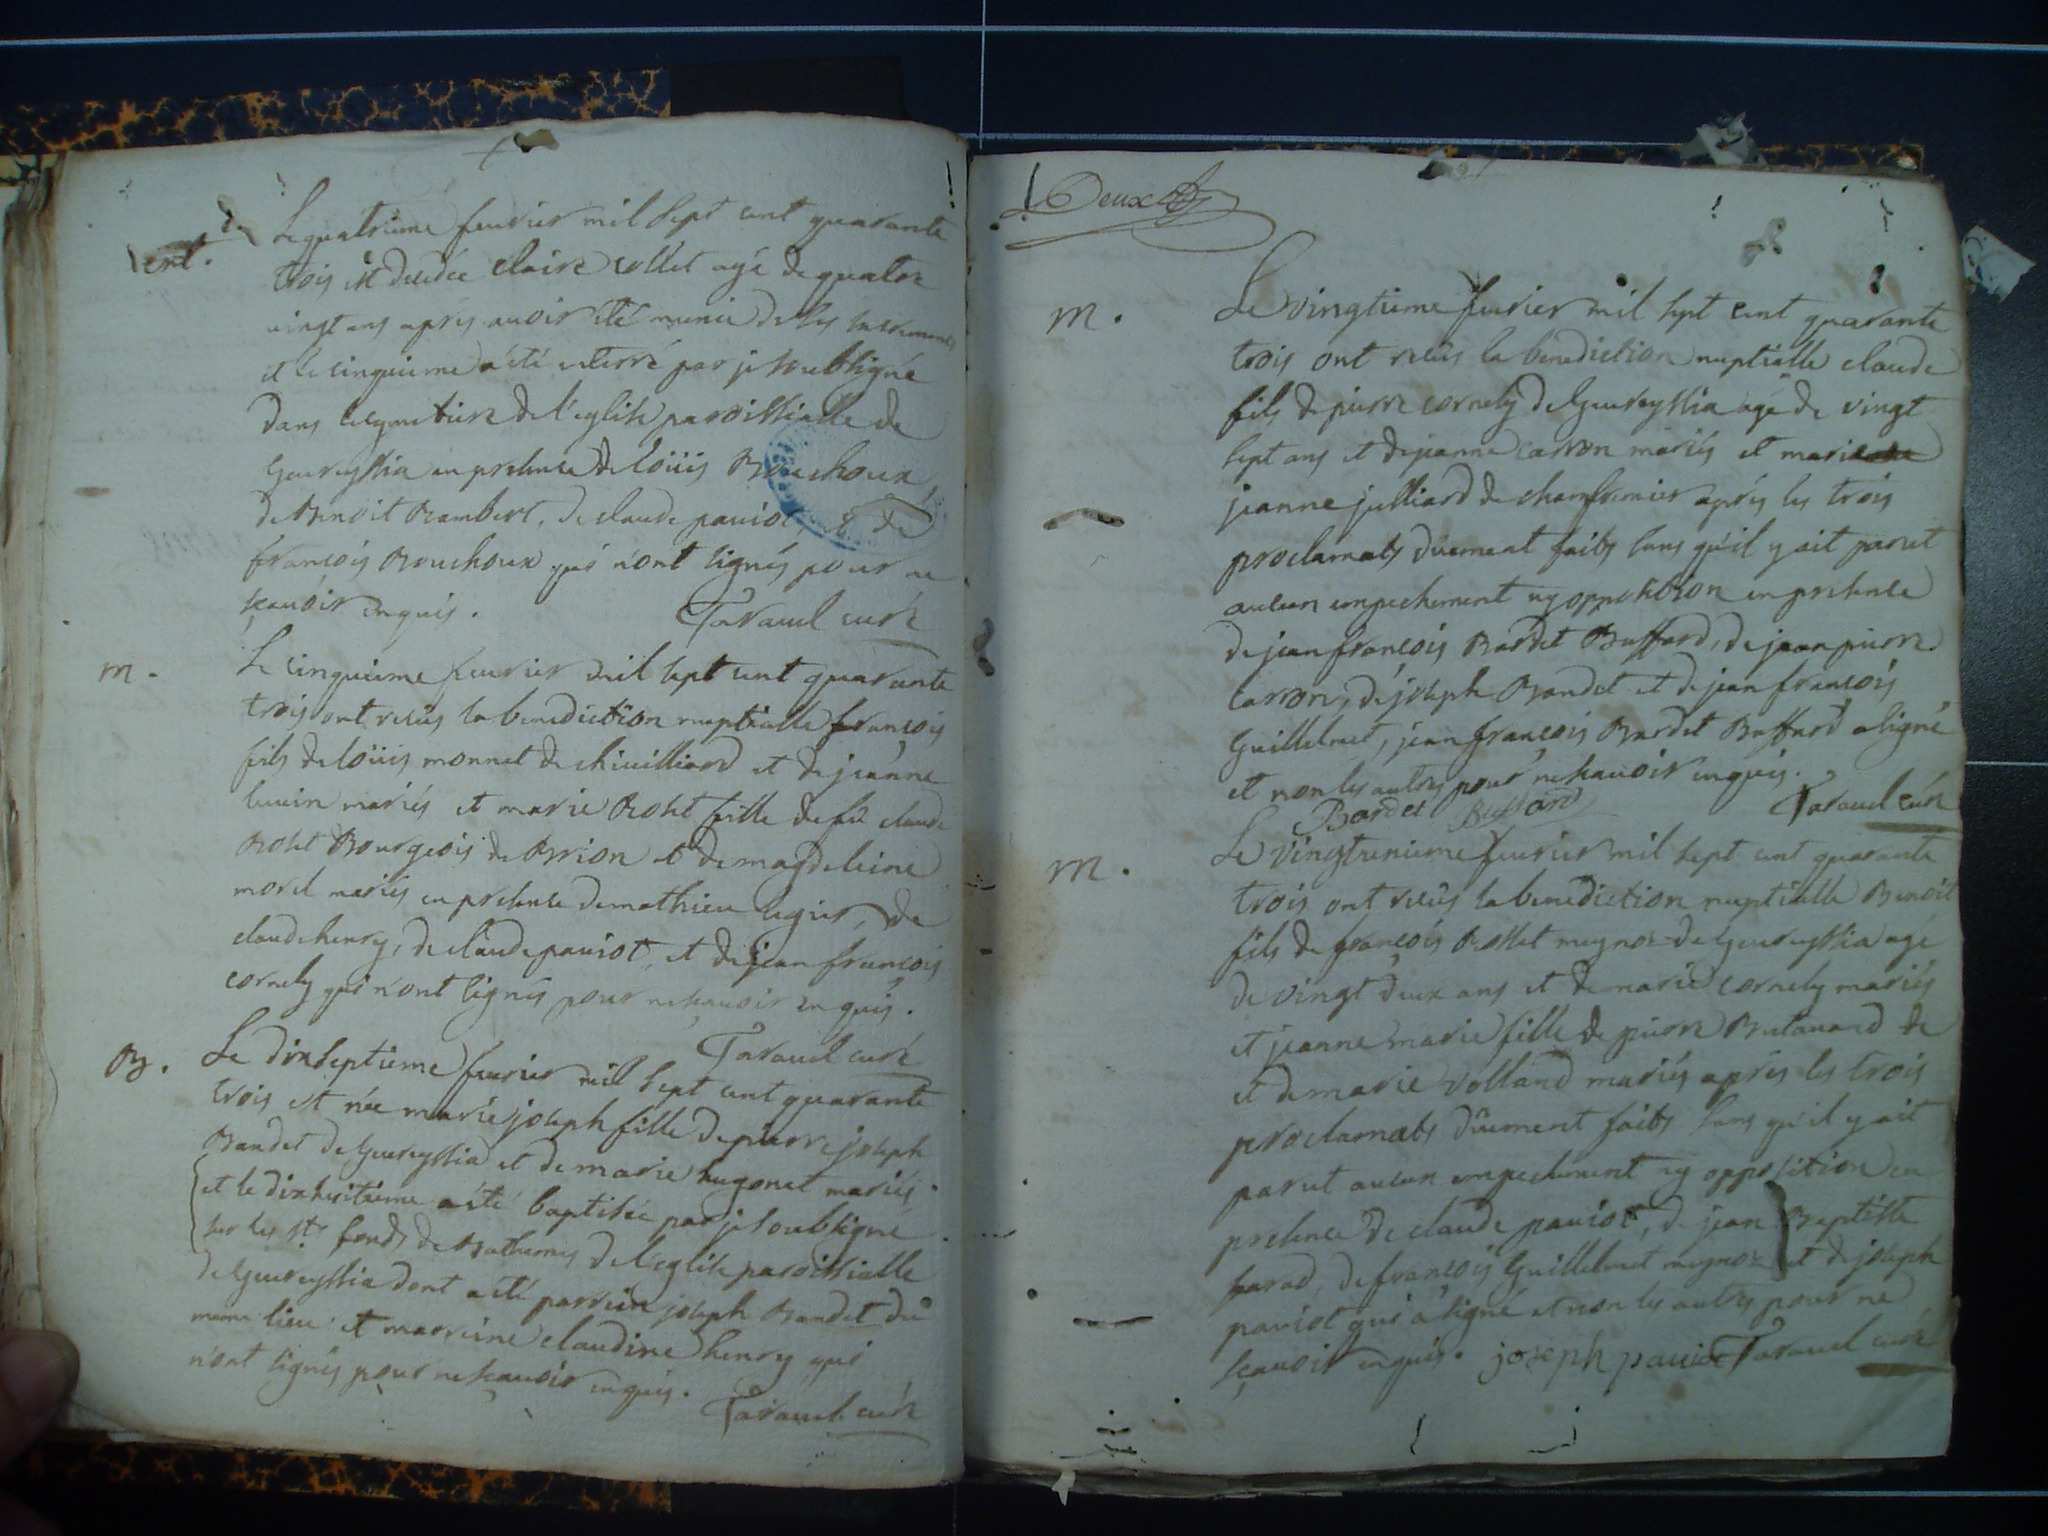 ent.
Le quatrieme feurier mil sept cent quarante
trois est decedée claire collet agé de quatre
vingt ans apres auoir été munie de ses sacremens
et le cinquieme a été enterré par je soubsigné
dans le cymetiere de l'eglise paroissialle de
Geureyssia en presence de loüis Bouchoux,
de Benoit Rambert, de claude pauiot, & de
francois Bouchoux qui n'ont signés pour ne
scauoir enquis.
Tavaud curé
m.
Le cinquieme feurier mil sept cent quarante
trois ont reçûs la benediction nuptialle francois
fils de loüis monnet de chiuilliard et de jeanne
mariés et marie Rolet fille de fû claude
Rolet Bourgeois de Brion et de magdeleine
morel mariés en presence de mathieu legier, de
claude henry, de claude pauiot, et de jean francois
cornely qui n'ont signés pour ne scauoir en quis.
Tavaud curé
B.
Le dixseptieme feurier mil sept cent quarante
trois est née marie joseph fille de pierre joseph
Bandet de Geureyssia et de marie hugonet mariés
et le dixhuitieme a été baptisée par je soubsigné
sur les sts fonds de Bathemes de l'eglise paroissialle
de Geureyssia dont a été parrein joseph Bandet du
meme lieu et marreine claudine henry qui
n'ont signés pour ne scauoir enquis.
Tavaud curé
Deux
m.
Le vingtieme feurier mil sept cent quarante
trois ont reçûs la benediction nuptialle claude
fils de pierre cornely de Geureyssia agé de vingt
sept ans et de jeanne carron mariés et marie
jeanne julliard de chamfremier aprés les trois
proclamats dûement faits sans qu'il y ait parut
aucun empechement ny opposition en presence
de jean francois Bardet Buffard, de jean pierre
carron, de joseph Bandet et de jean francois
Guillelmet, jean francois Bardet Buffard a signé
et non les autres pour ne scauoir enquis.
Bardet Buffard
Tavaud curé
m.
Le vingtunieme feurier mil sept cent quarante
trois ont reçûs la benediction nuptialle Benoit
fils de francois Rollet mugnoz de Geureyssia agé
de vingt deux ans et de marie cornely mariés
et jeanne marie fille de pierre de
et de marie volland mariés aprés les trois
proclamats dûement faits sans qu'il y ait
parut aucun empechement ny opposition en
presence de claude pauiot, de jean Baptiste
de francois Guillelmet mugnoz et de joseph
pauiot qui a signé et non les autres pour ne
scauoir enquis. joseph pauiot Tavaud curé